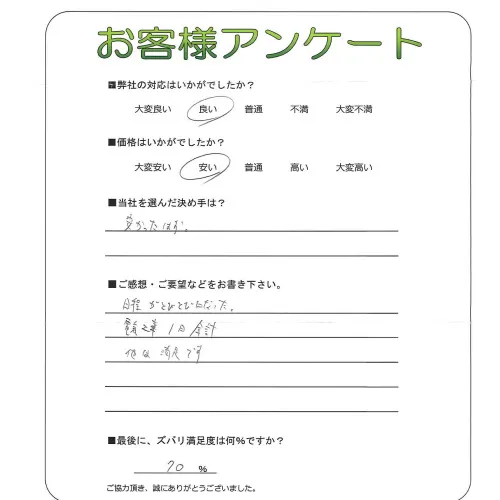 お客様アンケート
■弊社の対応はいかがでしたか？
大変良い 良い 普通 不満 大変不満
■価格はいかがでしたか？
大変安い 安い 普通 高い 大変高い
■当社を選んだ決め手は？
安かった
■ご感想・ご要望などをお書き下さい。
日程がとびとびになった。
工事 1日 余計
他は 満足です
■最後に、ズバリ満足度は何％ですか？
70 ％
ご協力頂き、誠にありがとうございました。